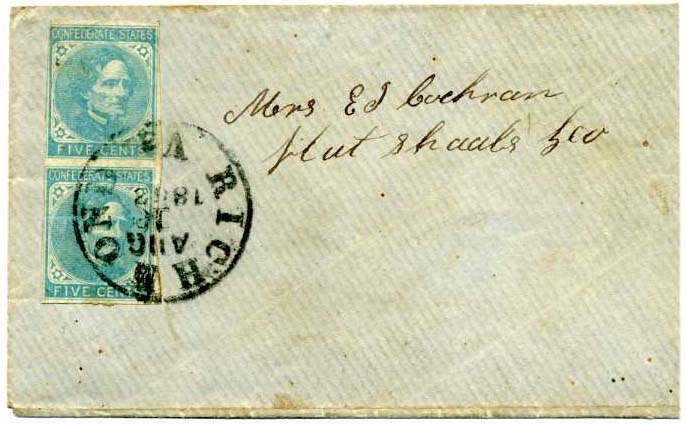 CONFEDERATE STATES
FIVE CENTS
CONFEDERATE STATES
FIVE CENTS
RICHMOND VA
AUG
186
Mrs Ed Cochran
flat shoals Geo